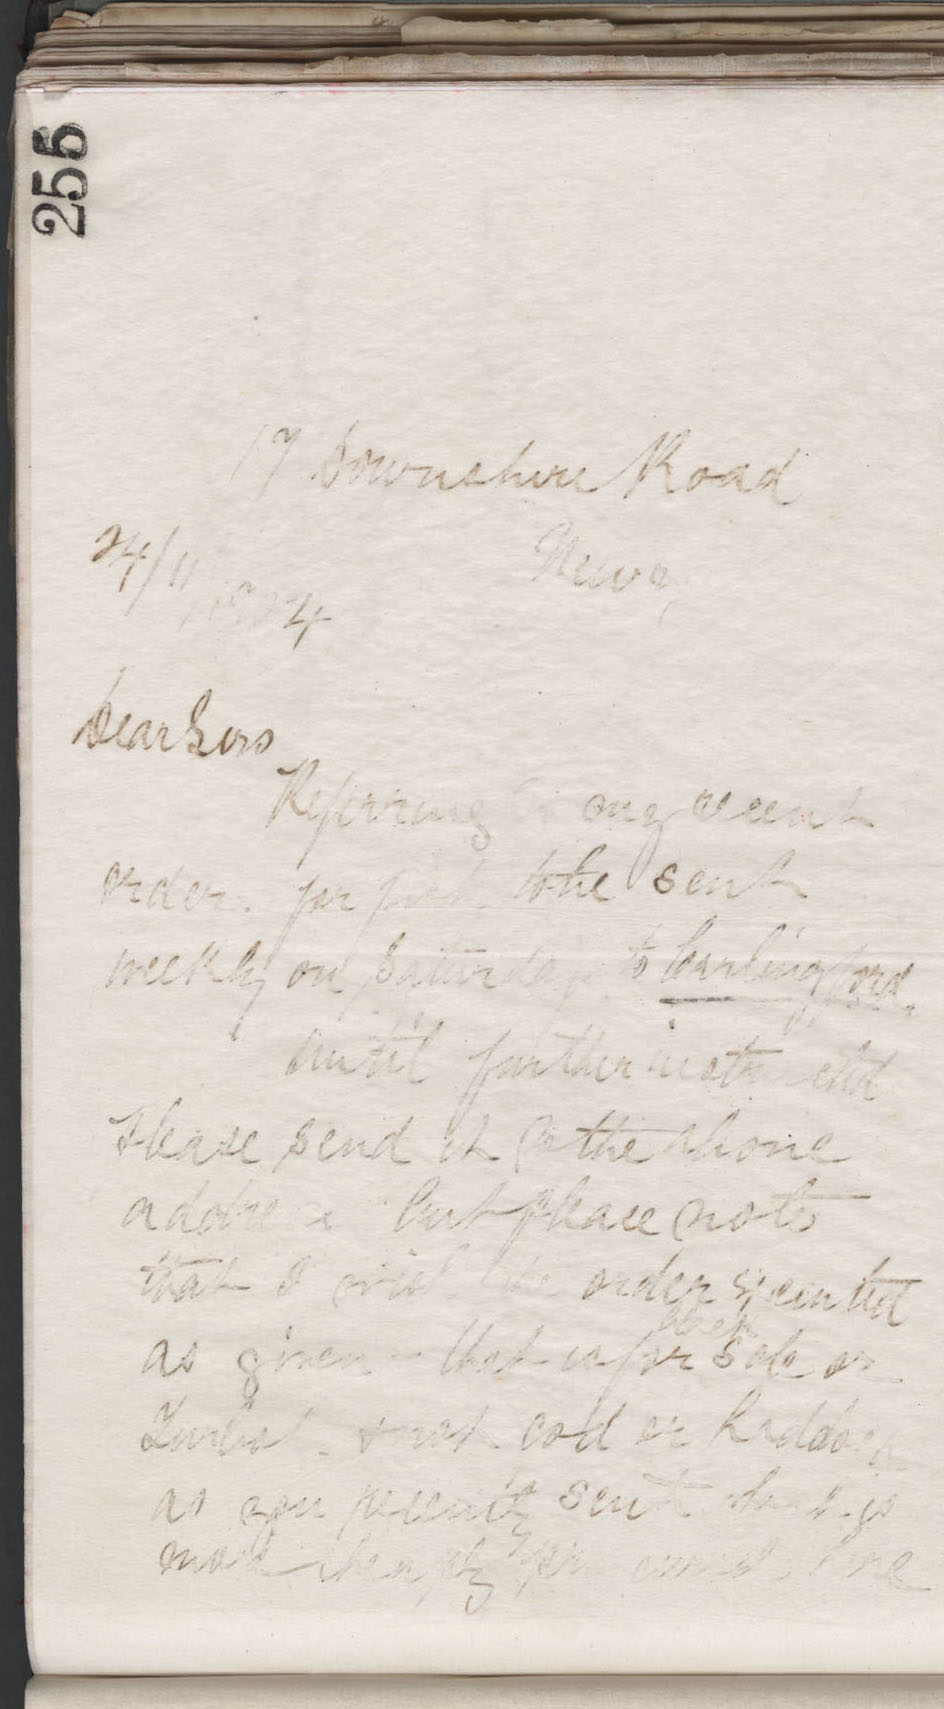 255
17 Downshire Road
Newry
24/11/1924
Dear Sirs
Referring to my recent
order for fish to be sent
weekly on Saturday to Carlingford.
until further
Please send it to the above
address but please note
that I wish the order executed
as given - that is for black Sole or
Turbot - not cod or haddock
as you recently sent
more cheaply